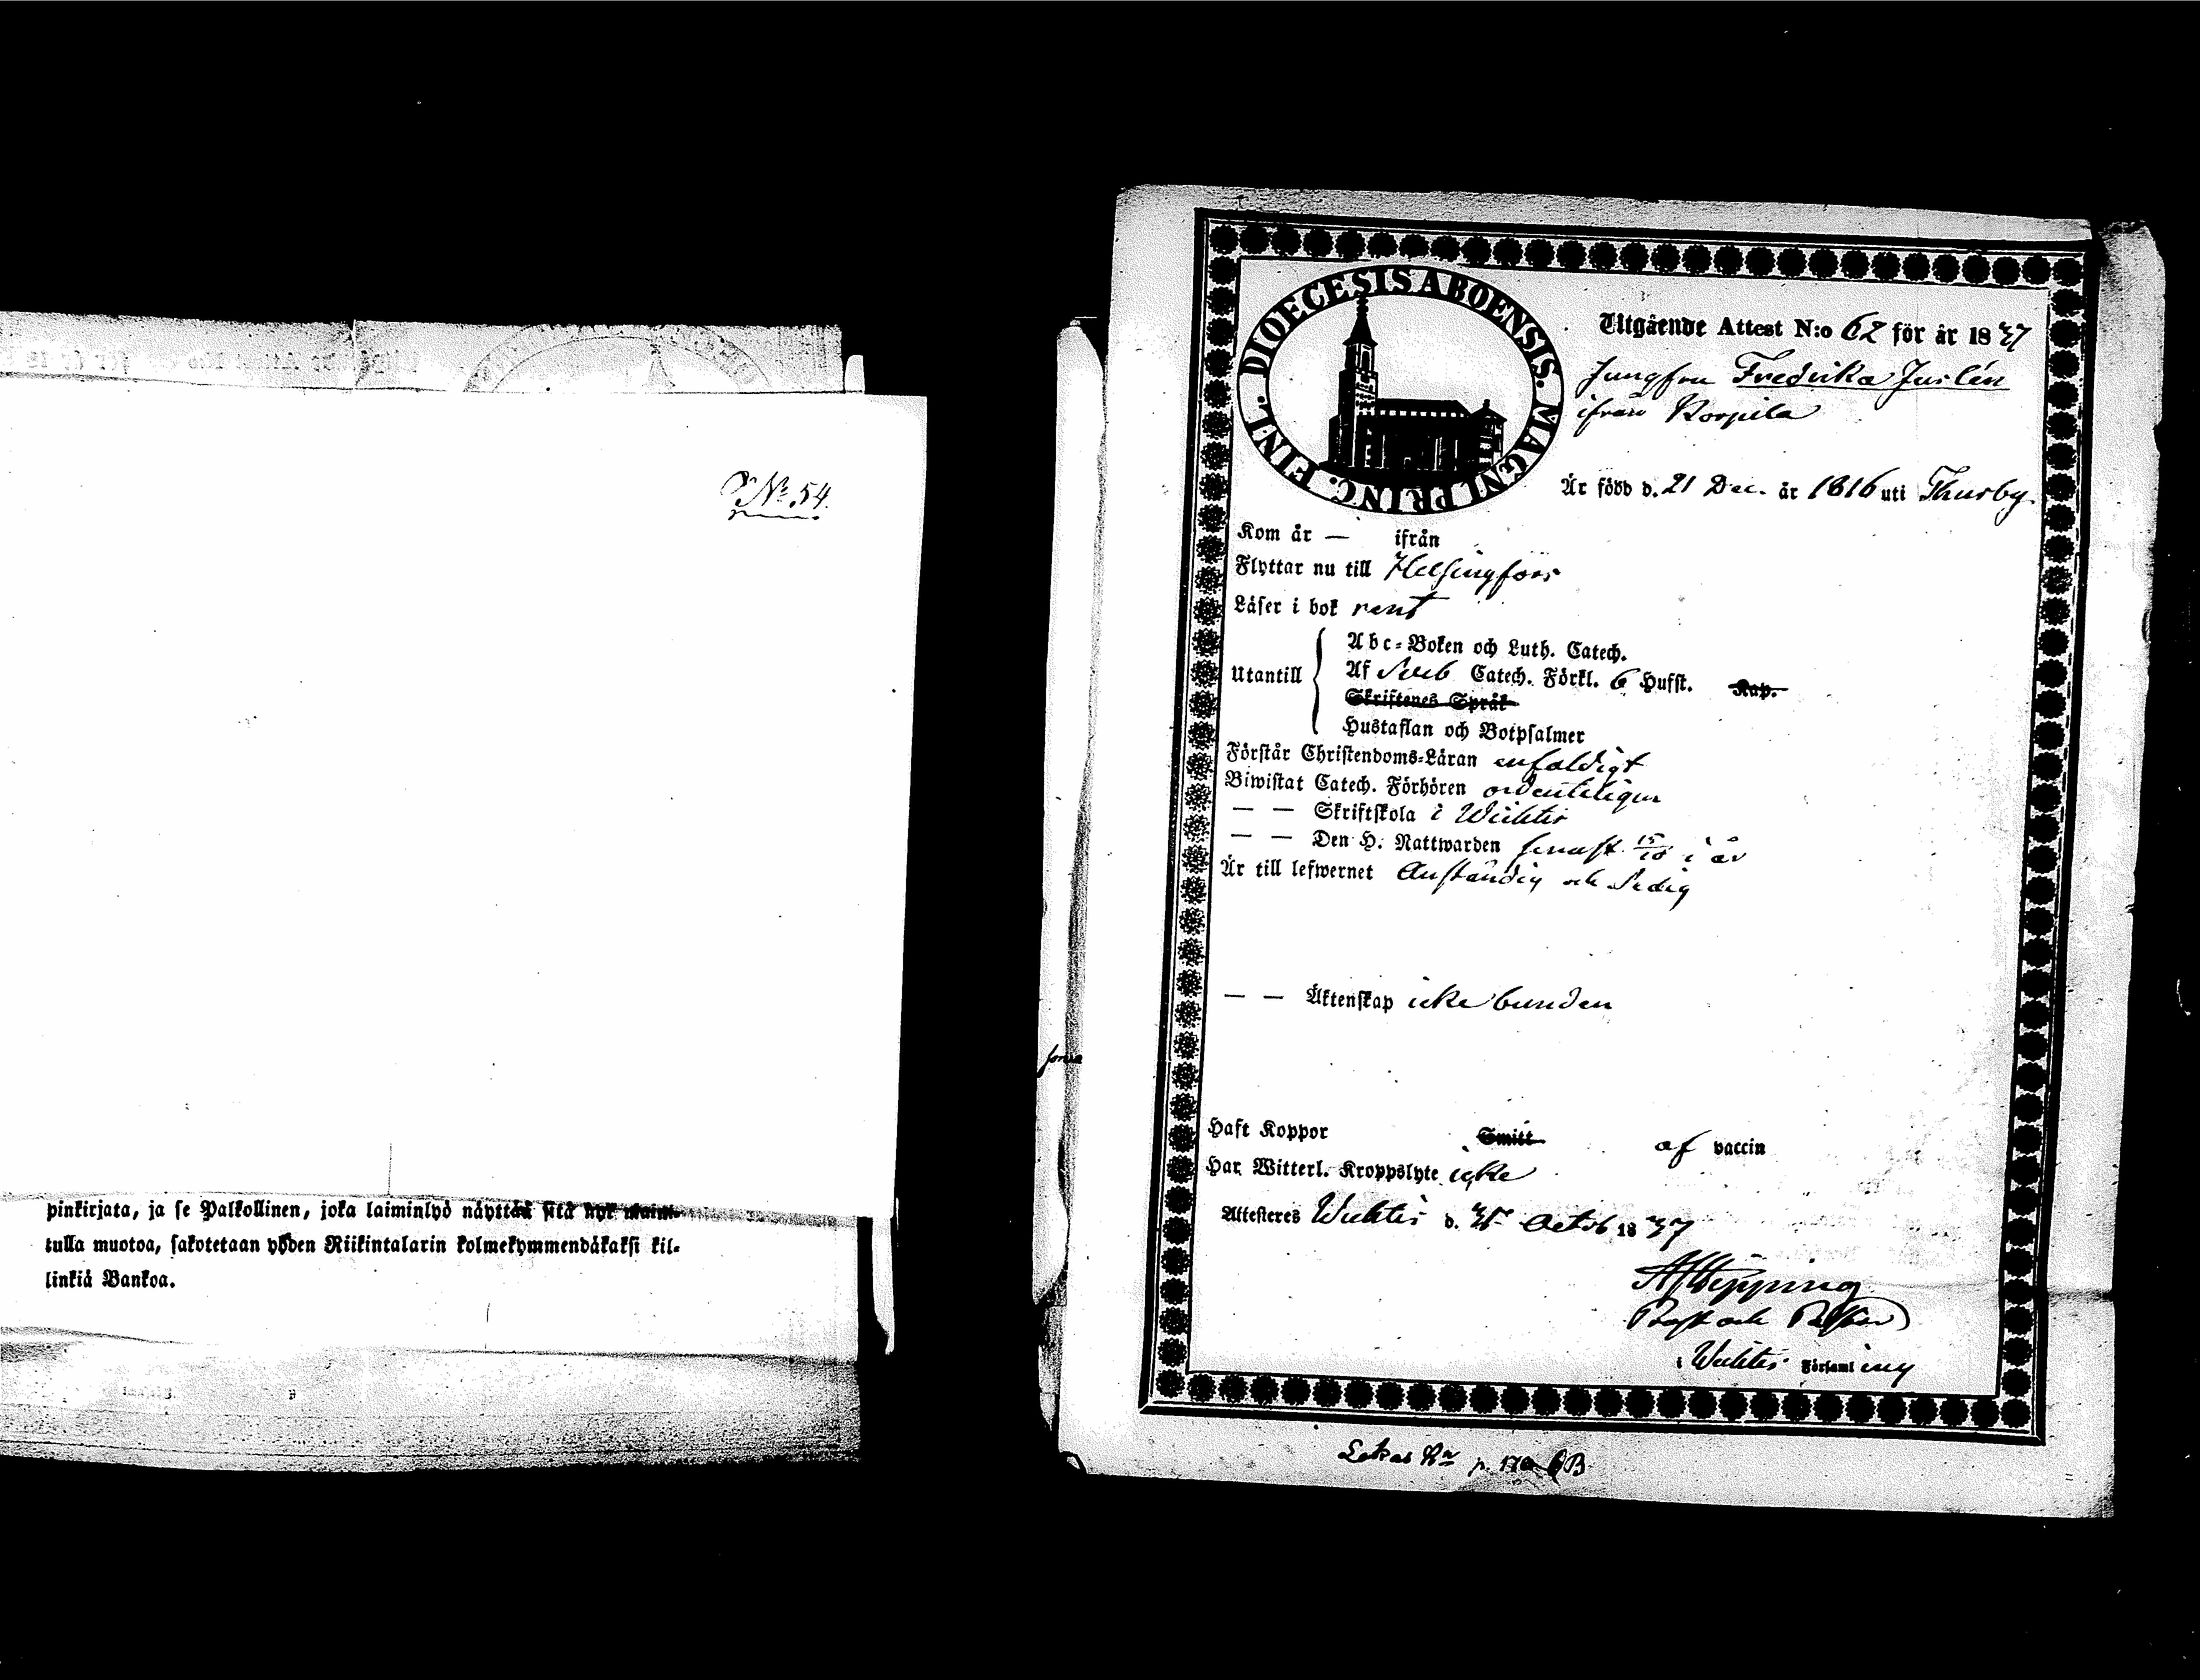 N:o 54.
pinkirjata, ja se Palkollinen, joka laiminlyö näyttää sitä nyt
tulla muotoa, sakotetaan yhden Riikintalarin kolmekymmendäkaksi kil-
linkiä Bankoa.
DIOECESIS ABOENSIS. MAGNI PRINC. FINL.
Utgående Attest N:o 62 för år 1837
Jungfru Fredrika Juslén
ifrån Korpila
Är född d. 21 Dec. år 1816 uti Thusby.
Kom år — ifrån
Flyttar nu till Helsingfors
Läser i bok rent
Abc-Boken och Luth. Catech.
Utantill Af Sveb Catech. Förkl. 6 Hufst. Kap.
Skriftenes Språk
Hustaflan och Botpsalmer
Förstår Christendoms-Läran enfaldigt
Biwistat Catech. Förhören ordenteligen
— — Skriftskola i Wichtis
— — Den H. Nattwarden senast 15/10 i år
Är till lefwernet Anständig och Sedig
— — Äktenskap icke bunden
Haft Koppor Smitt af vaccin
Har Witterl. Kroppslyte icke
Attesteres Wichtis d. Octob 1837
Prost och Pastor
i Wichtis Församling
p. 170